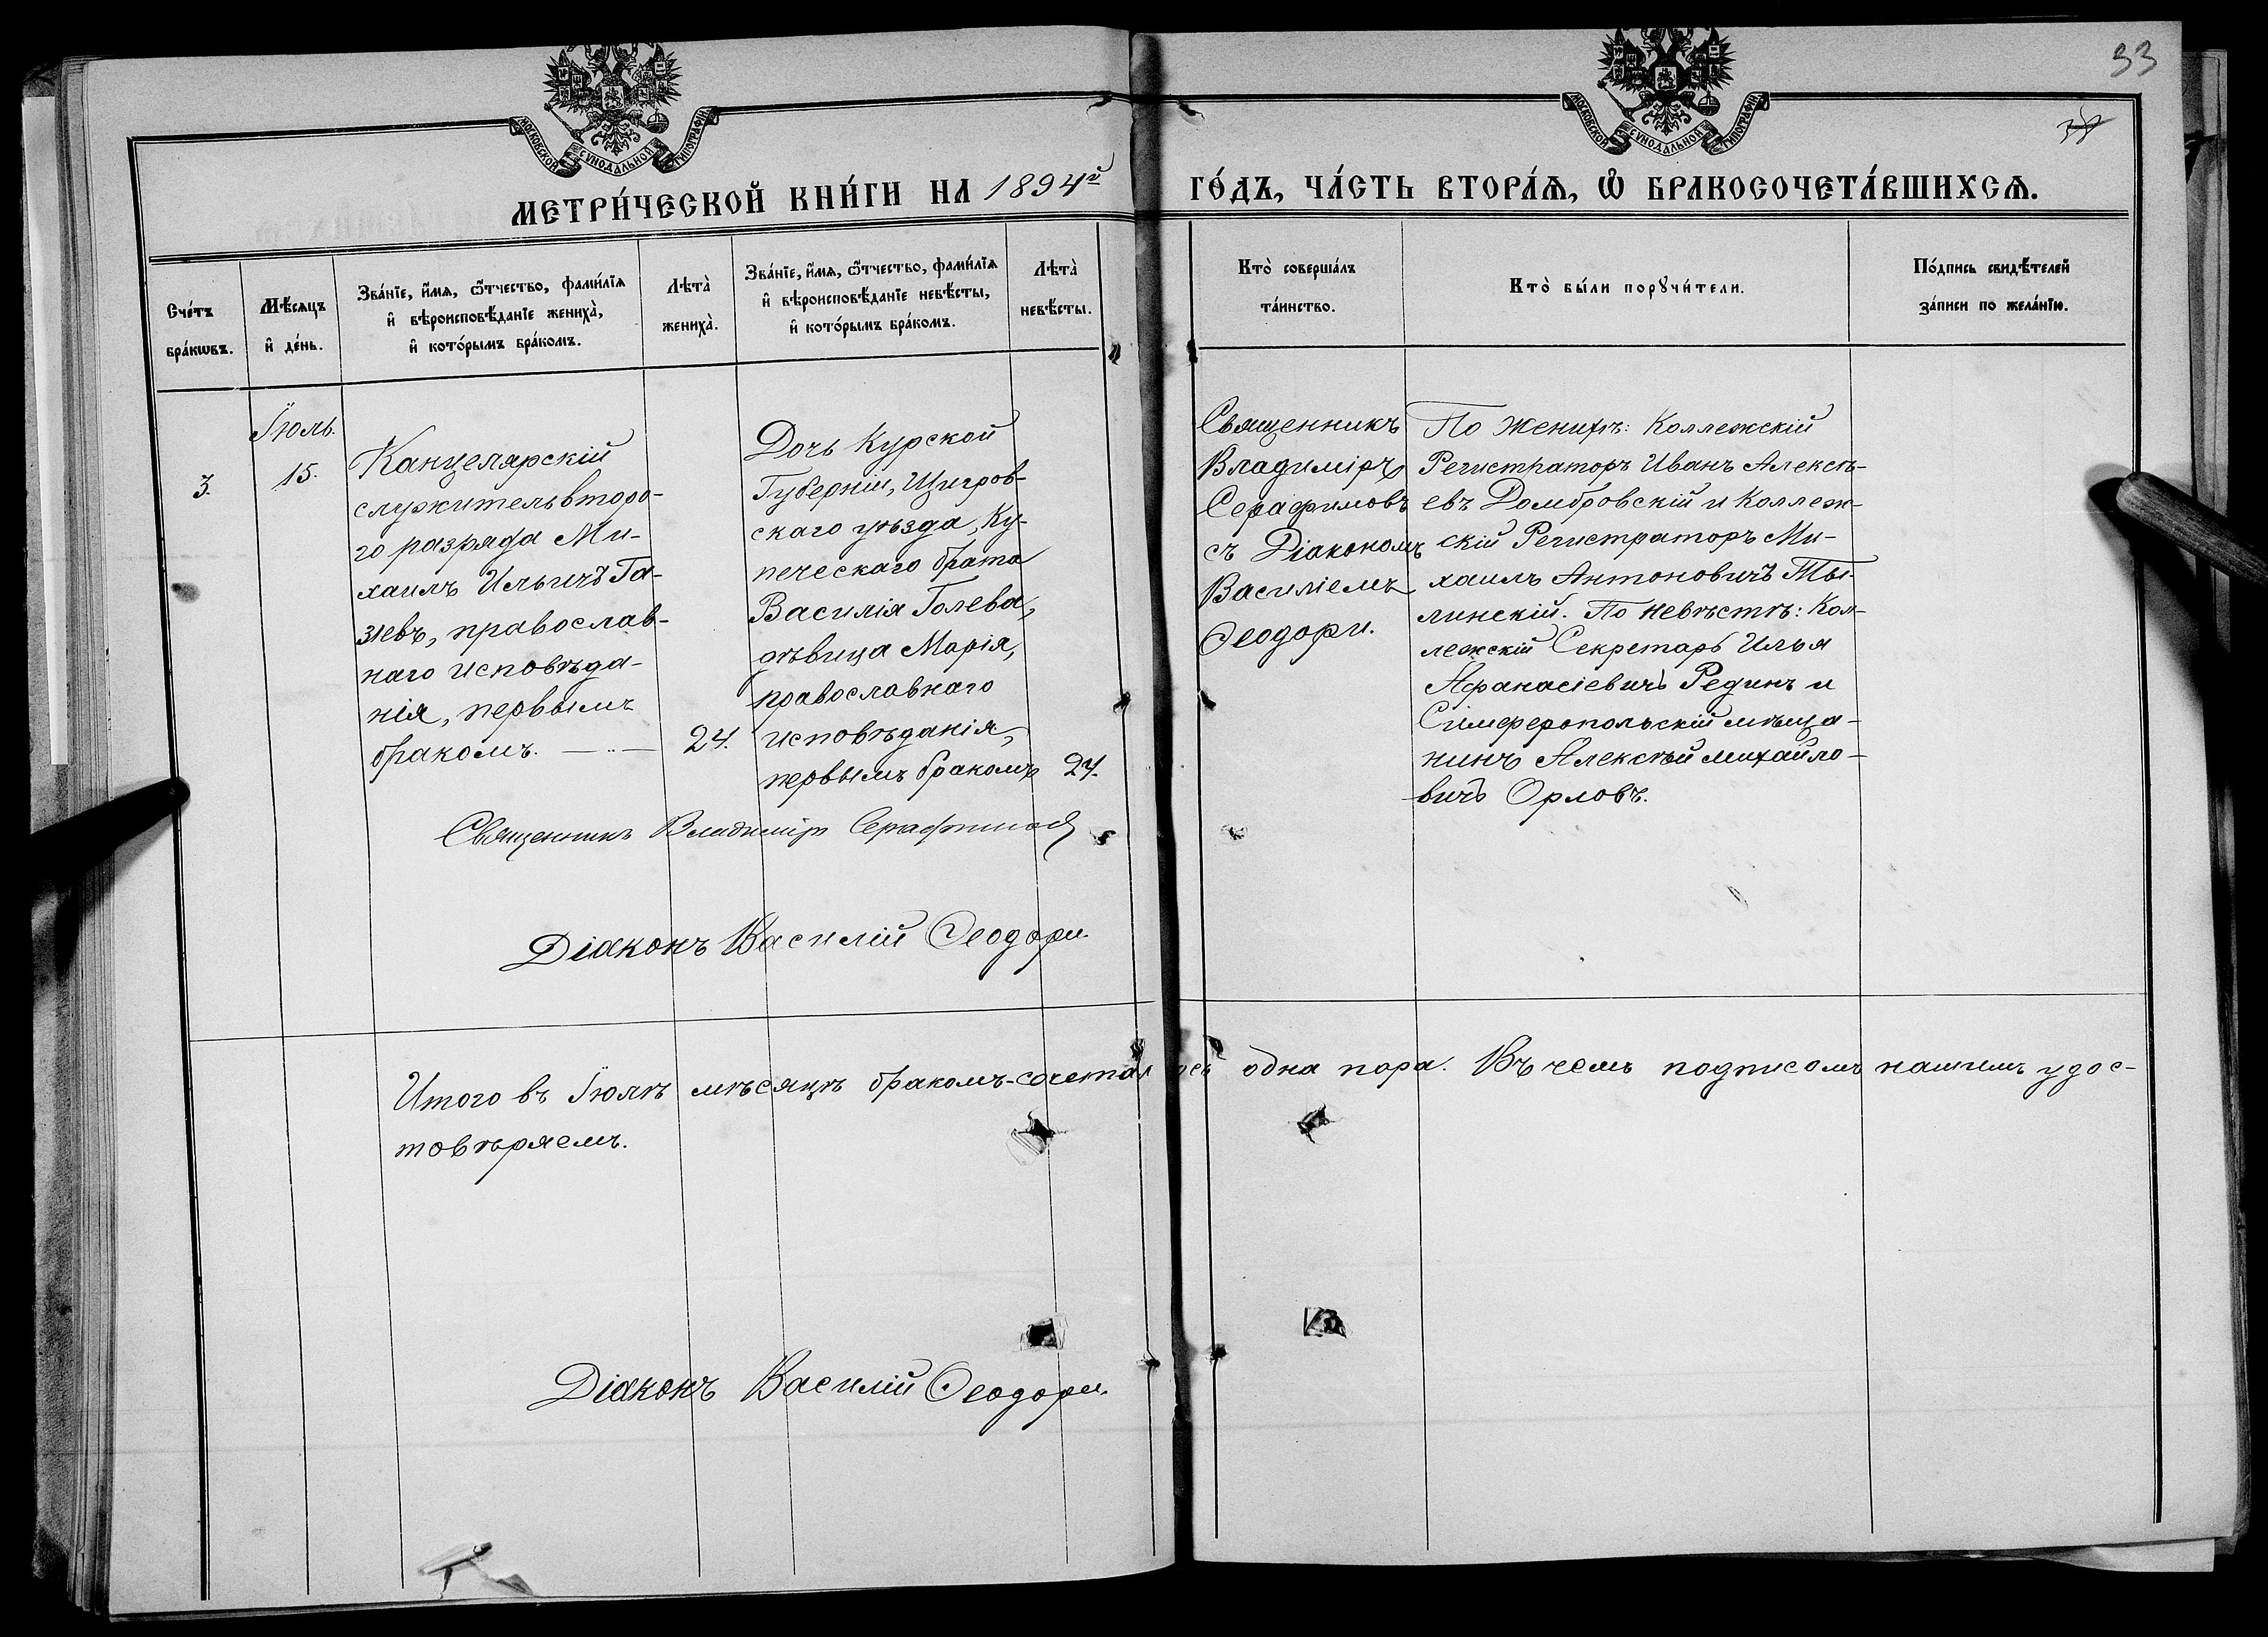 33
МОСКОВСКОЙ СУНОДАЛЬНОЙ ТИПОГРАФІИ
МОСКОВСКОЙ СУНОДАЛЬНОЙ ТИПОГРАФІИ
МЕТРИ́ЧЕСКОЙ КНИ́ГИ НА 1894й ГО́ДЪ, ЧА́СТЬ ВТОРА́Ѧ, Ѡ҆ БРАКОСОЧЕТА́ВШИХСѦ.
Сче́тъ
бра́кѡвъ.
Мѣ́сяцъ
и҆ де́нь.
Зва́нїе, и҆́мя, ѻ҆́тчество, фами́лїя
и҆ вѣроисповѣ́данїе жениха̀,
и҆ кото́рымъ бра́комъ.
Лѣта̀
жениха̀.
Зва́нїе, и҆́мя, ѻ҆́тчество, фами́лїя
и҆ вѣроисповѣ́данїе невѣ́сты,
и҆ кото́рымъ бра́комъ.
Лѣта̀
невѣ́сты.
Кто̀ соверша́лъ
та́инство.
Кто̀ бы́ли порꙋчи́тели.
По́дпись свидѣ́телей
за́писи по жела́нїю.
3.
Іюль.
15.
Канцелярскій
служитель второ-
го разряда Ми-
хаилъ Ильичъ Га-
зіевъ, православ-
наго исповѣда-
нія, первымъ
бракомъ. — „ —
24.
Дочь Курской
Губерніи, Щигров-
скаго уѣзда, Ку-
печескаго брата
Василія Голева,
дѣвица Марія,
православнаго
исповѣданія,
первымъ бракомъ
24.
Священникъ
Владиміръ
Серафимовъ
съ Діакономъ
Василіемъ
Ѳеодори.
По Женихѣ: Коллежскій
Регистраторъ Иванъ Алексѣ-
евъ Домбровскій и Коллеж-
скій Регистраторъ Ми-
хаилъ Антоновичъ Ты-
линскій. По Невѣстѣ: Кол-
лежскій Секретарь Илья
Афанасіевичъ Рединъ и
Симферопольскій мѣща-
нинъ Алексѣй Михайло-
вичъ Орловъ.
Священникъ Владиміръ Серафимовъ
Діаконъ Василій Ѳеодори.
Итого въ Іюлѣ мѣсяцѣ бракомъ-сочеталась одна пара. Въ чемъ подписомъ нашимъ удос-
товѣряемъ.
Діаконъ Василій Ѳеодори.